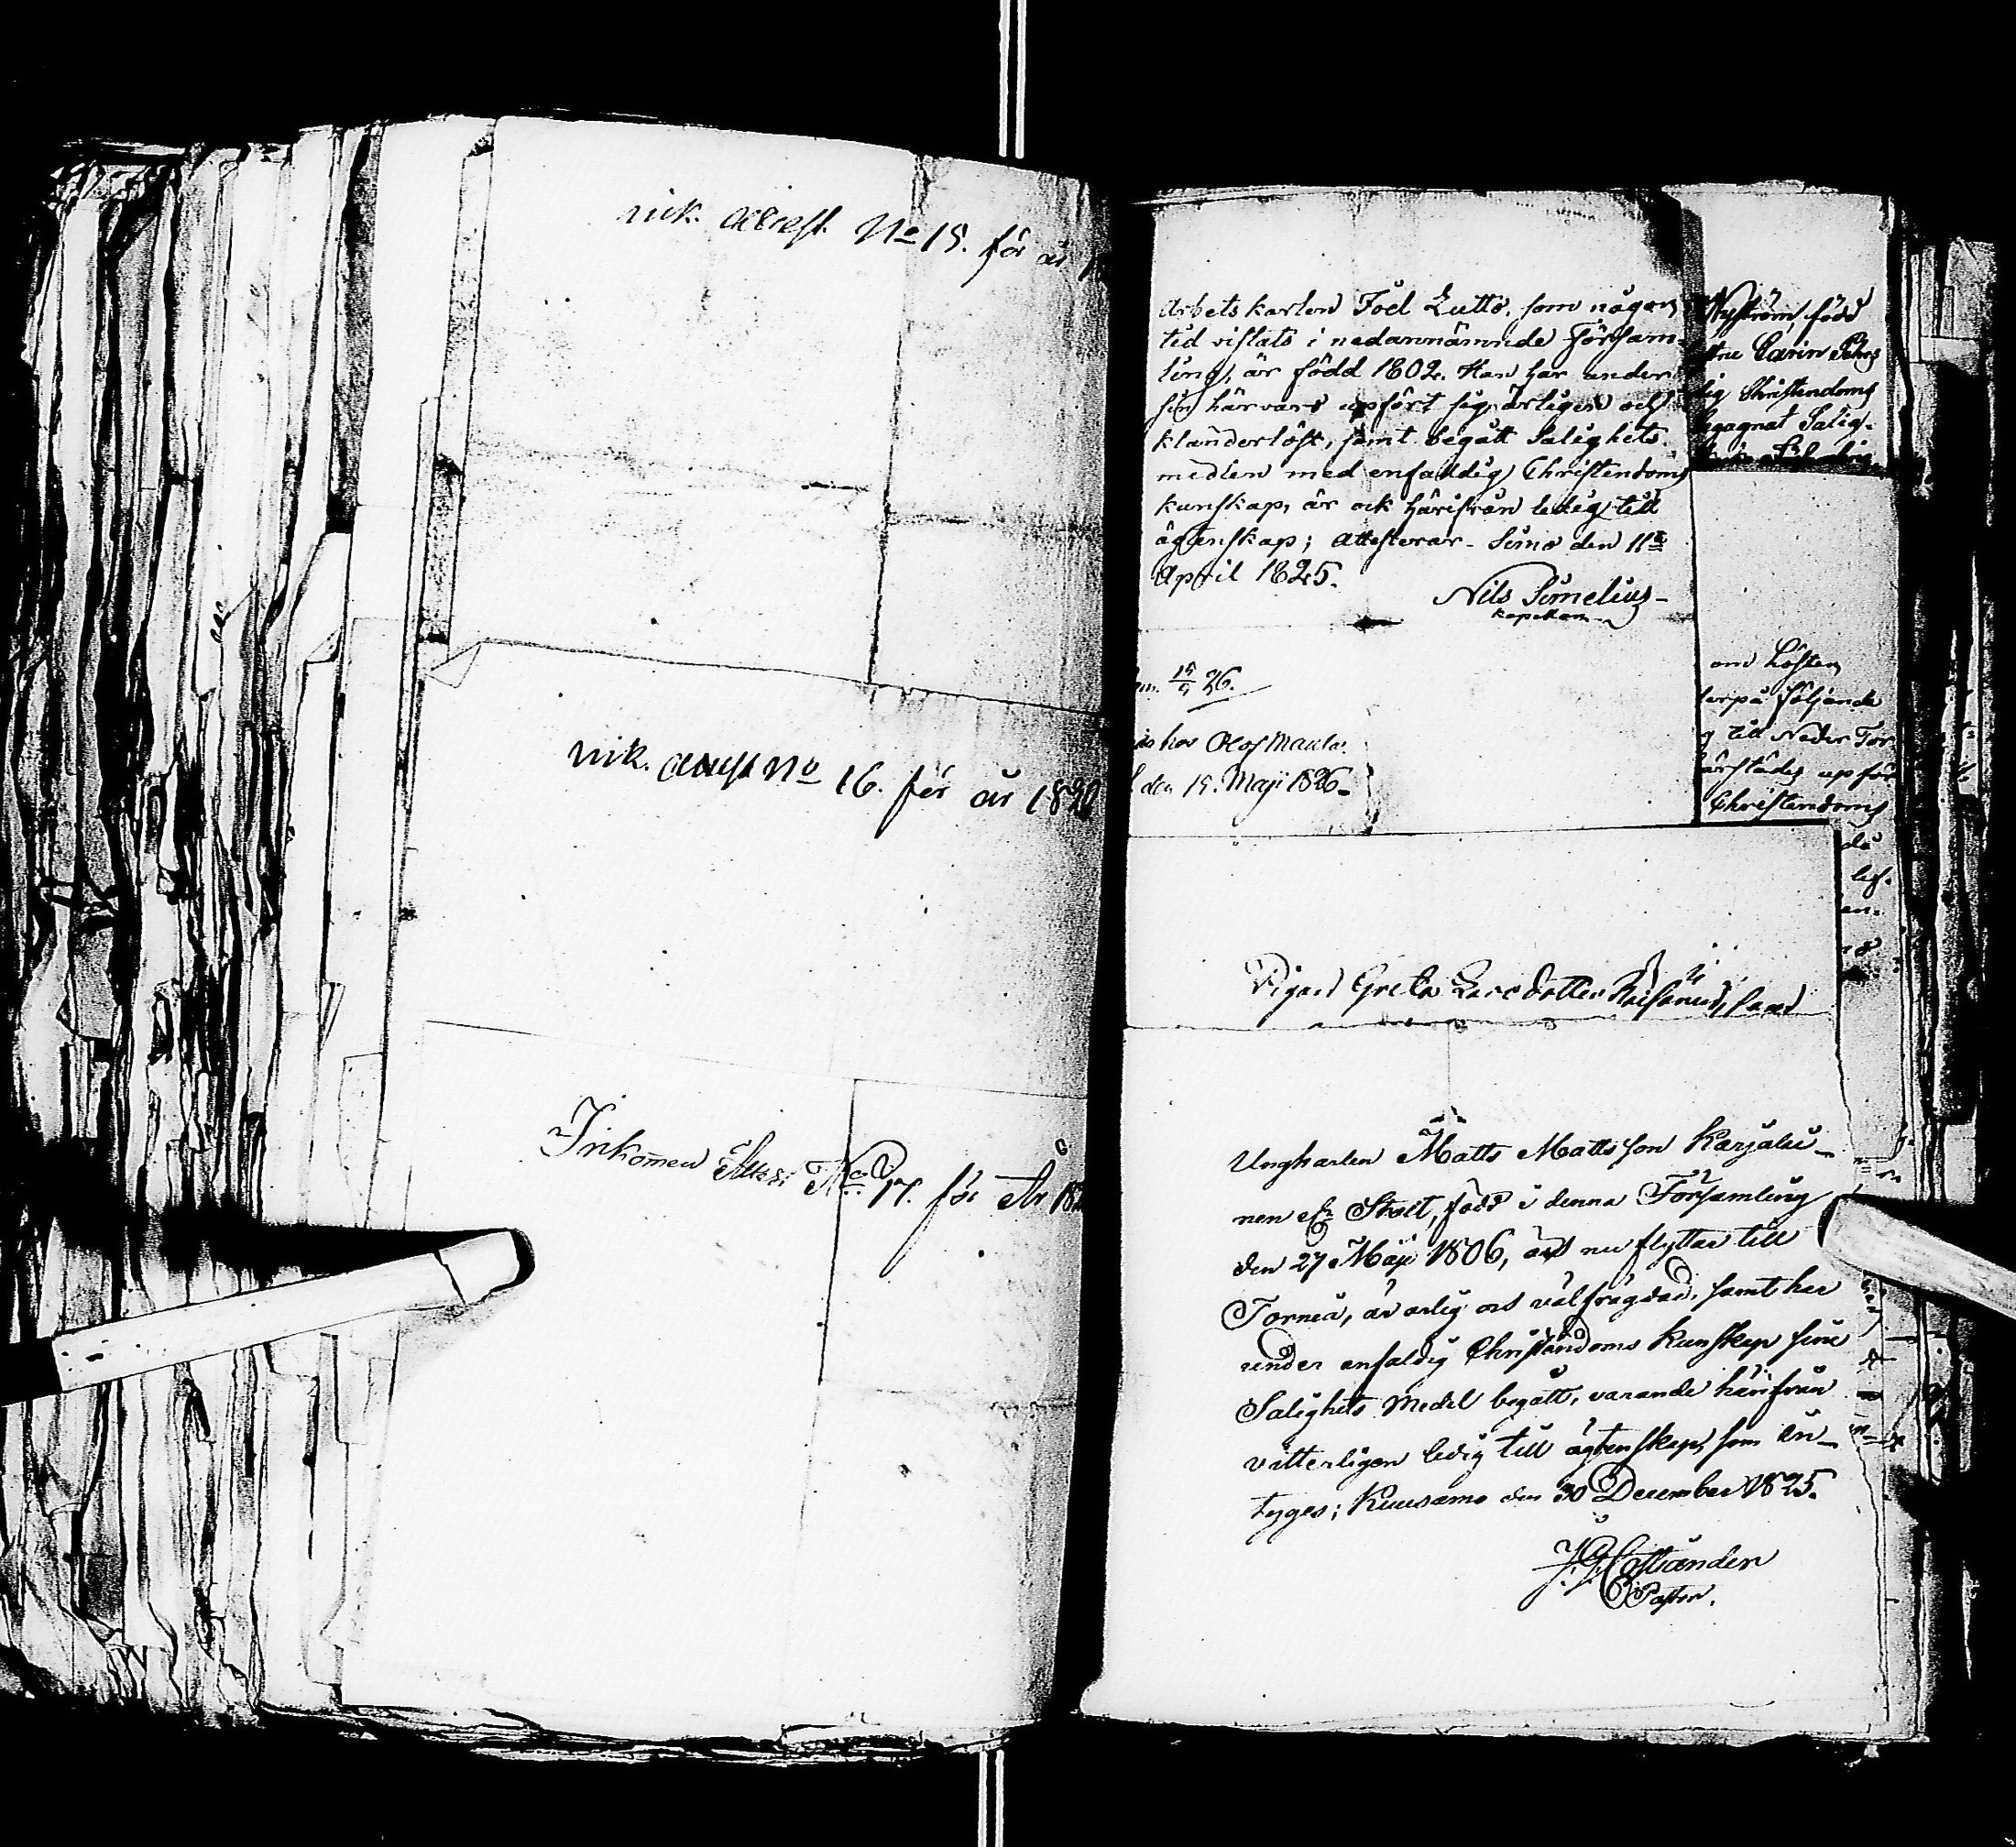 ink. attest. No 15. för år
ink. attest No 16. för år 1820
Inkommen Attest No 17. för År 182
Arbetskarlen Joel Lutto, som någon
tid vistats i nedannämnde Försam-
ling, är född 1802. Han har under
sin härvaro upfört sig ärligen och
klanderlöst, samt begått Salighets
medlen med enfaldig Christendoms
kunskap, är ock härifrån ledig till
ägtenskap; attesterar. Simo den 11te
April 1825.
Nils Simelius
kapellan
26.
hos Olof Maula.
den 15. Maji 1826.
Nyström, född
Carin Pehrs
Christendoms
begagnat Salig-
om hösten
derpå följande
till Neder Tor-
därstädes upför
Christendoms
Pigan Greta Larsdotter
Ungkarlen Matts Mattsson Karjalai-
nen eller Stolt, född i denna Församling
den 27 Maji 1806, och nu flyttar till
Torneå, är ärlig och välfrägdad, samt har
under enfaldig Christendoms Kunskap sine
Salighets Medel begått, varande härifrån
vitterligen ledig till ägtenskap, som in-
tyges; Kuusamo den 30 December 1825.
Costiander
Pastor.